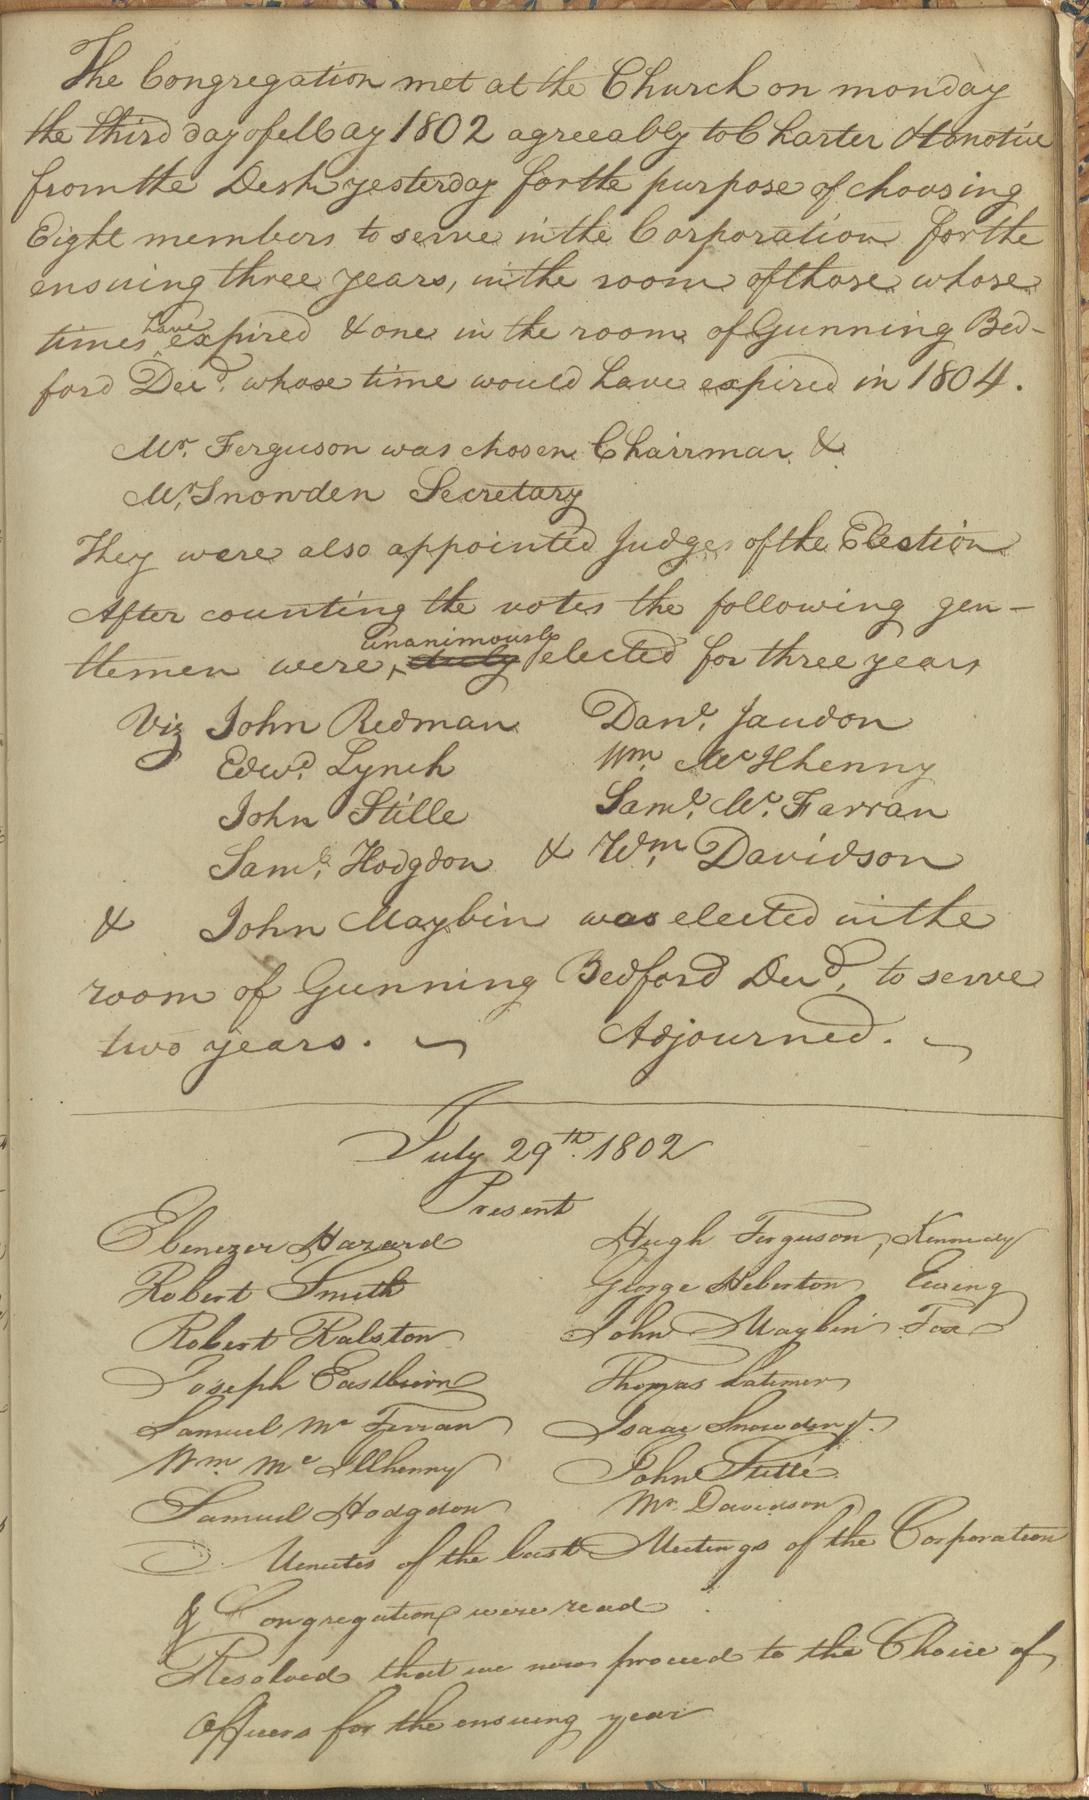 The Congregation met at the Church on monday
the third day of May 1802 agreeably to Charter & to notice
from the Desk yesterday for the purpose of choosing
Eight members to serve in the Corporation for the
ensuing three years, in the room of those whose
times have expired & one in the room of Gunning Bed-
ford Decd. whose time would have expired in 1804.
Mr. Ferguson was chosen Chairman &
Mr. Snowden Secretary
They were also appointed Judges of the Election
After counting the votes the following gen-
tlemen were unanimously duly elected for three years
Viz John Redman Danl. Jaudon
Edwd. Lynch Wm. McIlhenny
John Stille Saml. Mc. Farran
Saml. Hodgdon & Wm Davidson
& John Maybin was elected in the
room of Gunning Bedford Decd. to serve
two years. Adjourned.
July 29th. 1802
Present
Ebenezer Hazard Hugh Ferguson, Kennedy
Robert Smith George Heberton Ewing
Robert Ralston John Maybin Fox
Joseph Eastburn Thomas Latimer
Samuel Mc Ferran Isaac Snowden Jr.
Wm. Mc Illhenny John Stille
Samuel Hodgdon Mr. Davidson
Minutes of the last Meetings of the Corporation
& Congregation were read
Resolved that we now proceed to the Choice of
Officers for the ensuing year